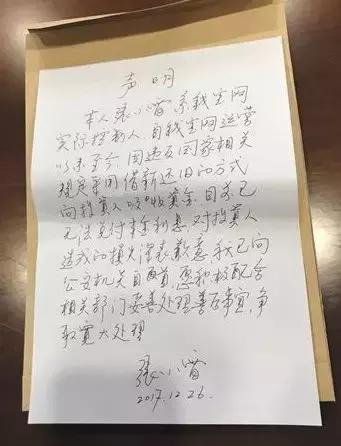 声明
本人张小雷系钱宝网
实际控制人，自钱宝网运营
以来至今因违反国家相关
规定采用借新还旧的方式
向投资人吸收资金，目前已
无法兑付本金利息，对投资人
造成的损失深表歉意，我已向
公安机关自首，愿积极配合
相关部门妥善处理善后事宜，争
取宽大处理
张小雷
2017.12.26.